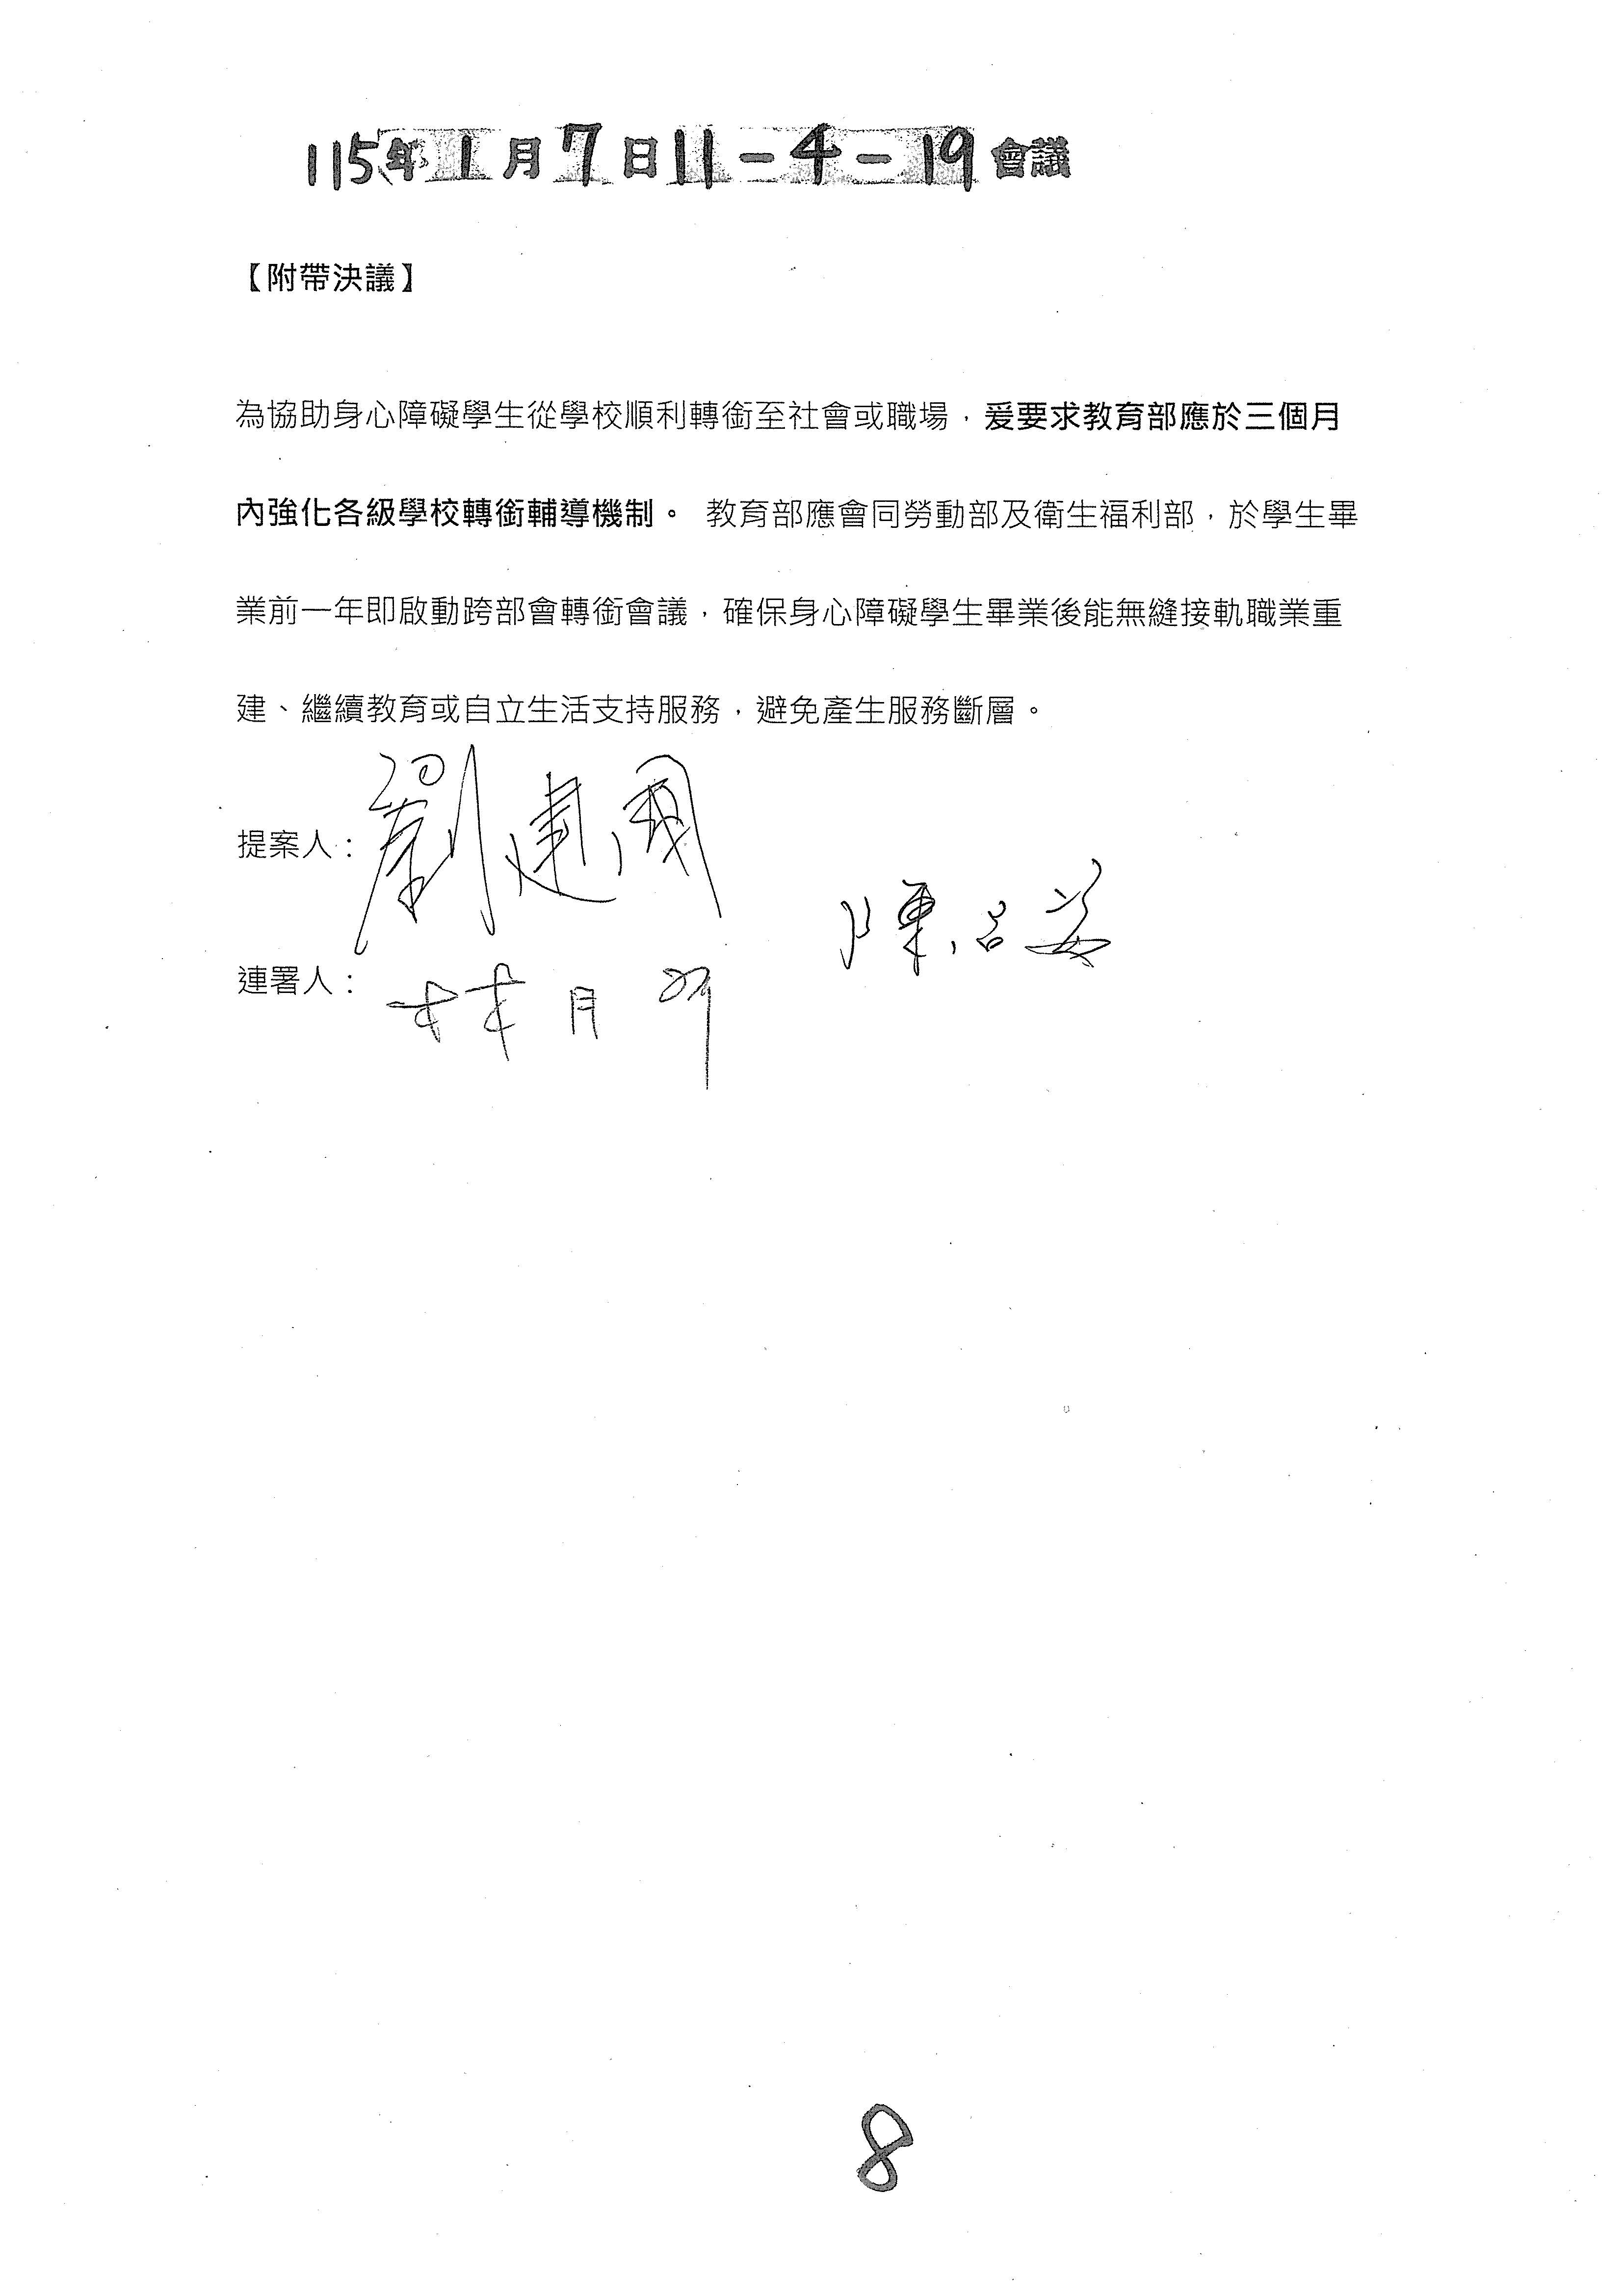 115年1月7日11-4-19會議
【附帶決議】
為協助身心障礙學生從學校順利轉銜至社會或職場，爰要求教育部應於三個月
內強化各級學校轉銜輔導機制。 教育部應會同勞動部及衛生福利部，於學生畢
業前一年即啟動跨部會轉銜會議，確保身心障礙學生畢業後能無縫接軌職業重
建、繼續教育或自立生活支持服務，避免產生服務斷層。
提案人：劉建國
連署人：林月琴
8